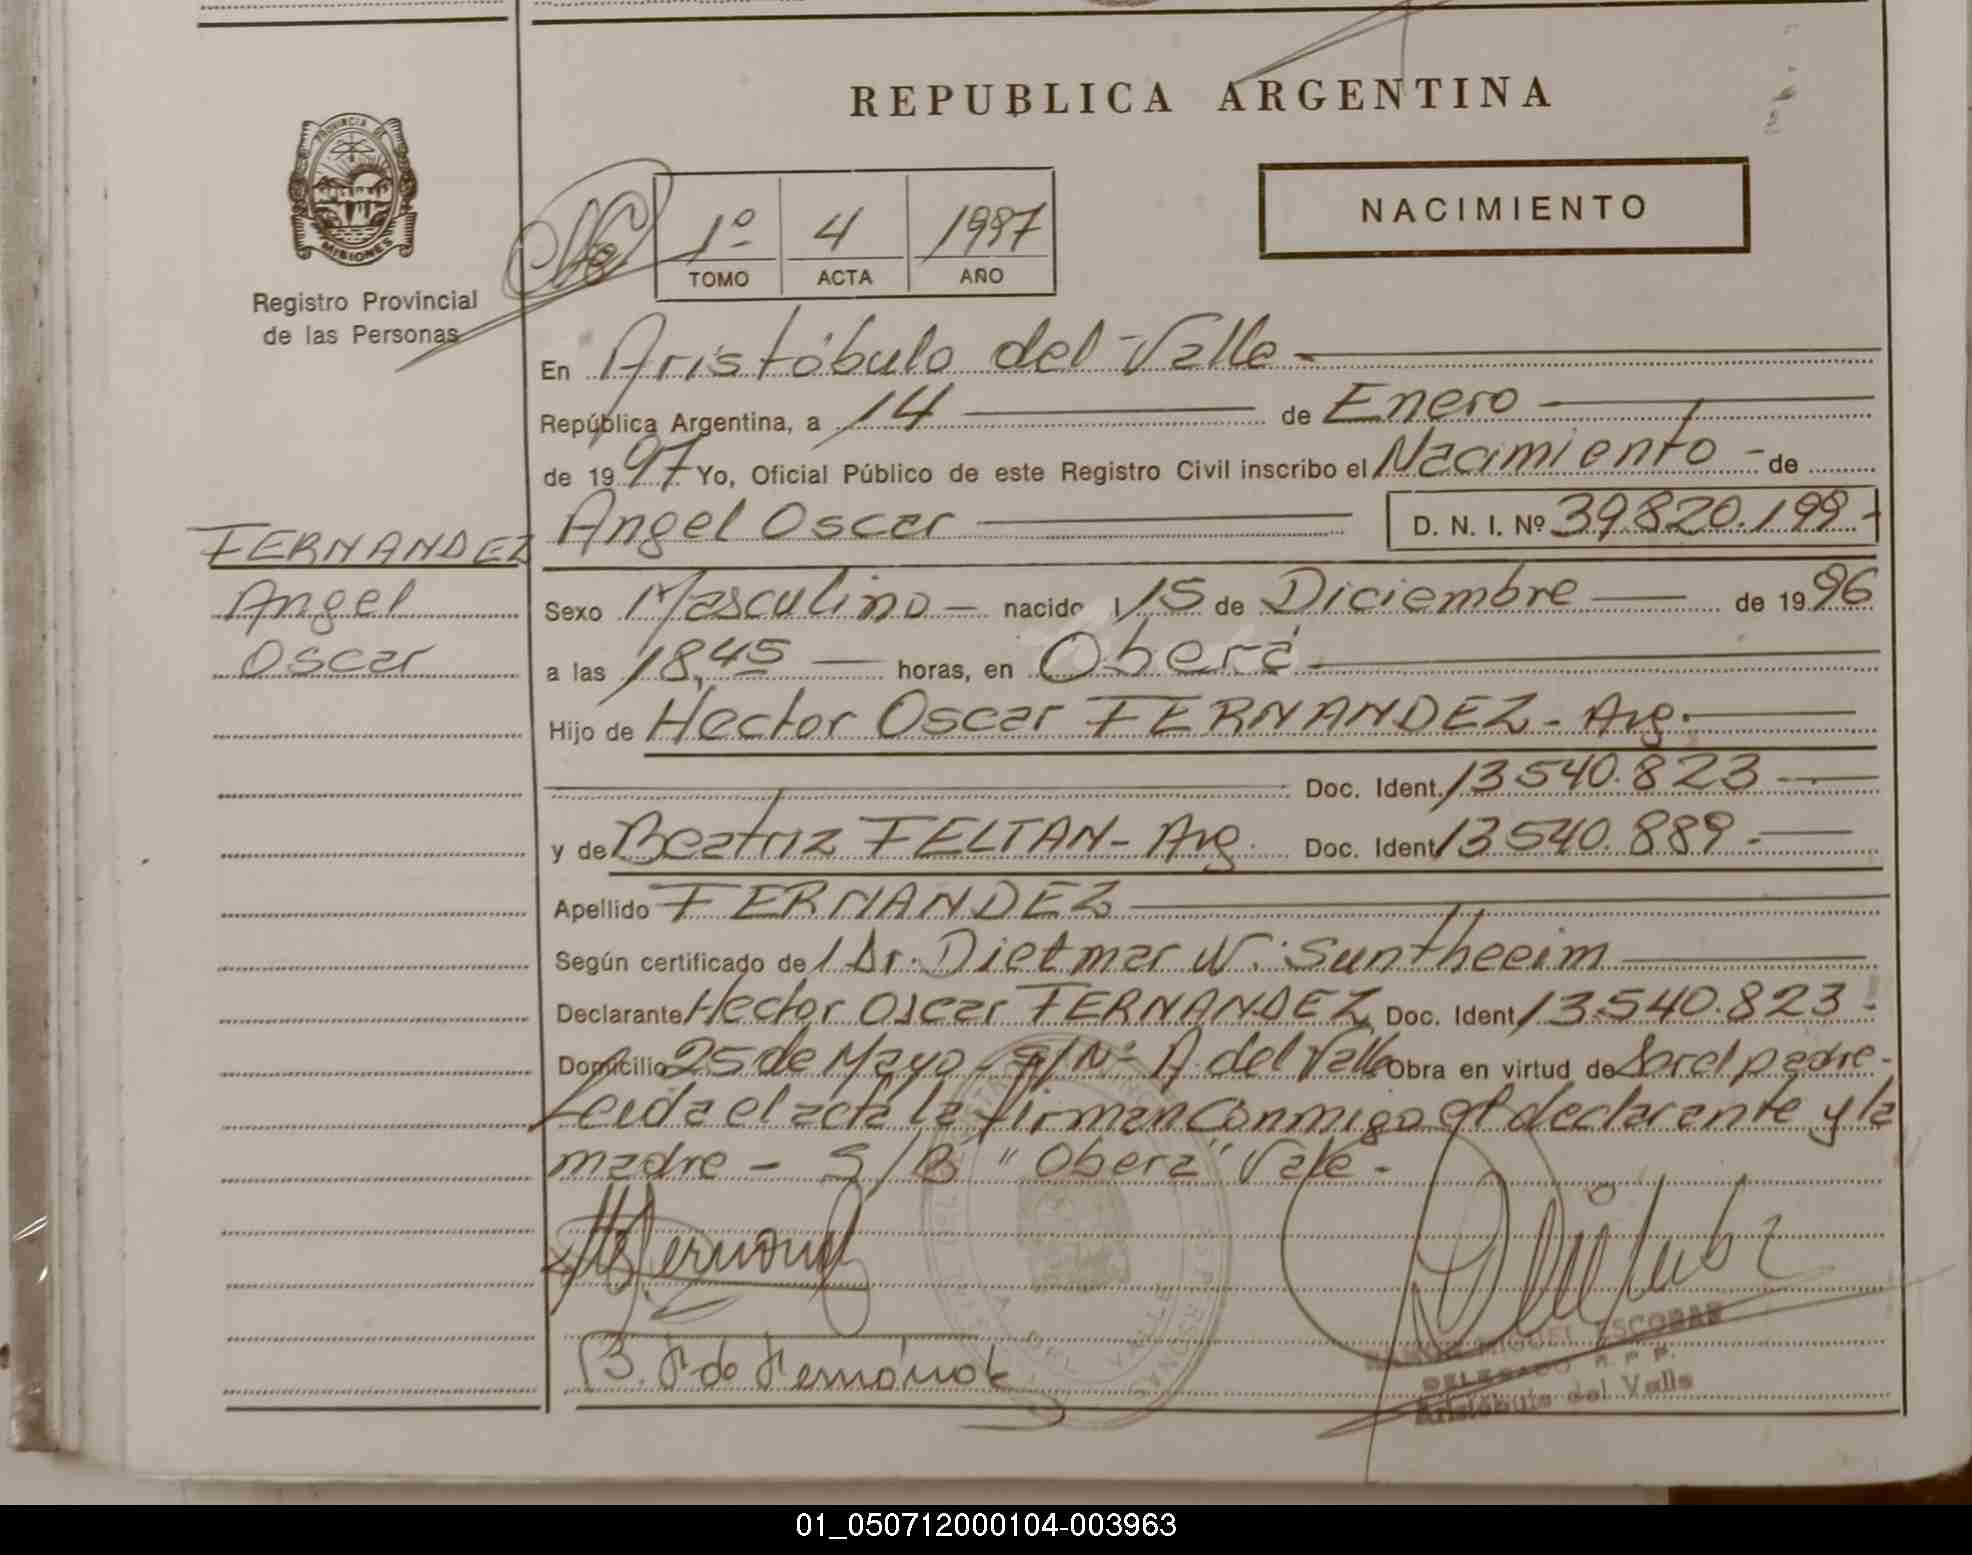 REPUBLICA ARGENTINA
PROVINCIA DE
MISIONES
Registro Provincial
de las Personas
1º 4 1997
TOMO ACTA AÑO
NACIMIENTO
En Aristóbulo del Valle
República Argentina, a 14 de Enero
de 1997 Yo, Oficial Público de este Registro Civil inscribo el Nacimiento - de
FERNANDEZ
Angel
Oscar
Angel Oscar D. N. I. Nº 39.820.199.-
Sexo Masculino - nacido l 15 de Diciembre de 1996
a las 18,45 horas, en Oberá
Hijo de Hector Oscar FERNANDEZ - Arg.
Doc. Ident. 13.540.823
y de Beatriz FELTAN - Arg. Doc. Ident. 13.540.889.-
Apellido FERNANDEZ
Según certificado de l Dr. Dietmar W. Suntheeim
Declarante Hector Oscar FERNANDEZ Doc. Ident. 13.540.823.
Domicilio 25 de Mayo - S/Nº A. del Valle Obra en virtud de Ser el padre.-
Leida el acta la firman conmigo el declarante y la
madre - S/B "Obera" Vale.-
B. F de Fernández
MIGUEL ESCOBAR
DELEGADO R. P. P.
Aristóbulo del Valle
01_050712000104-003963